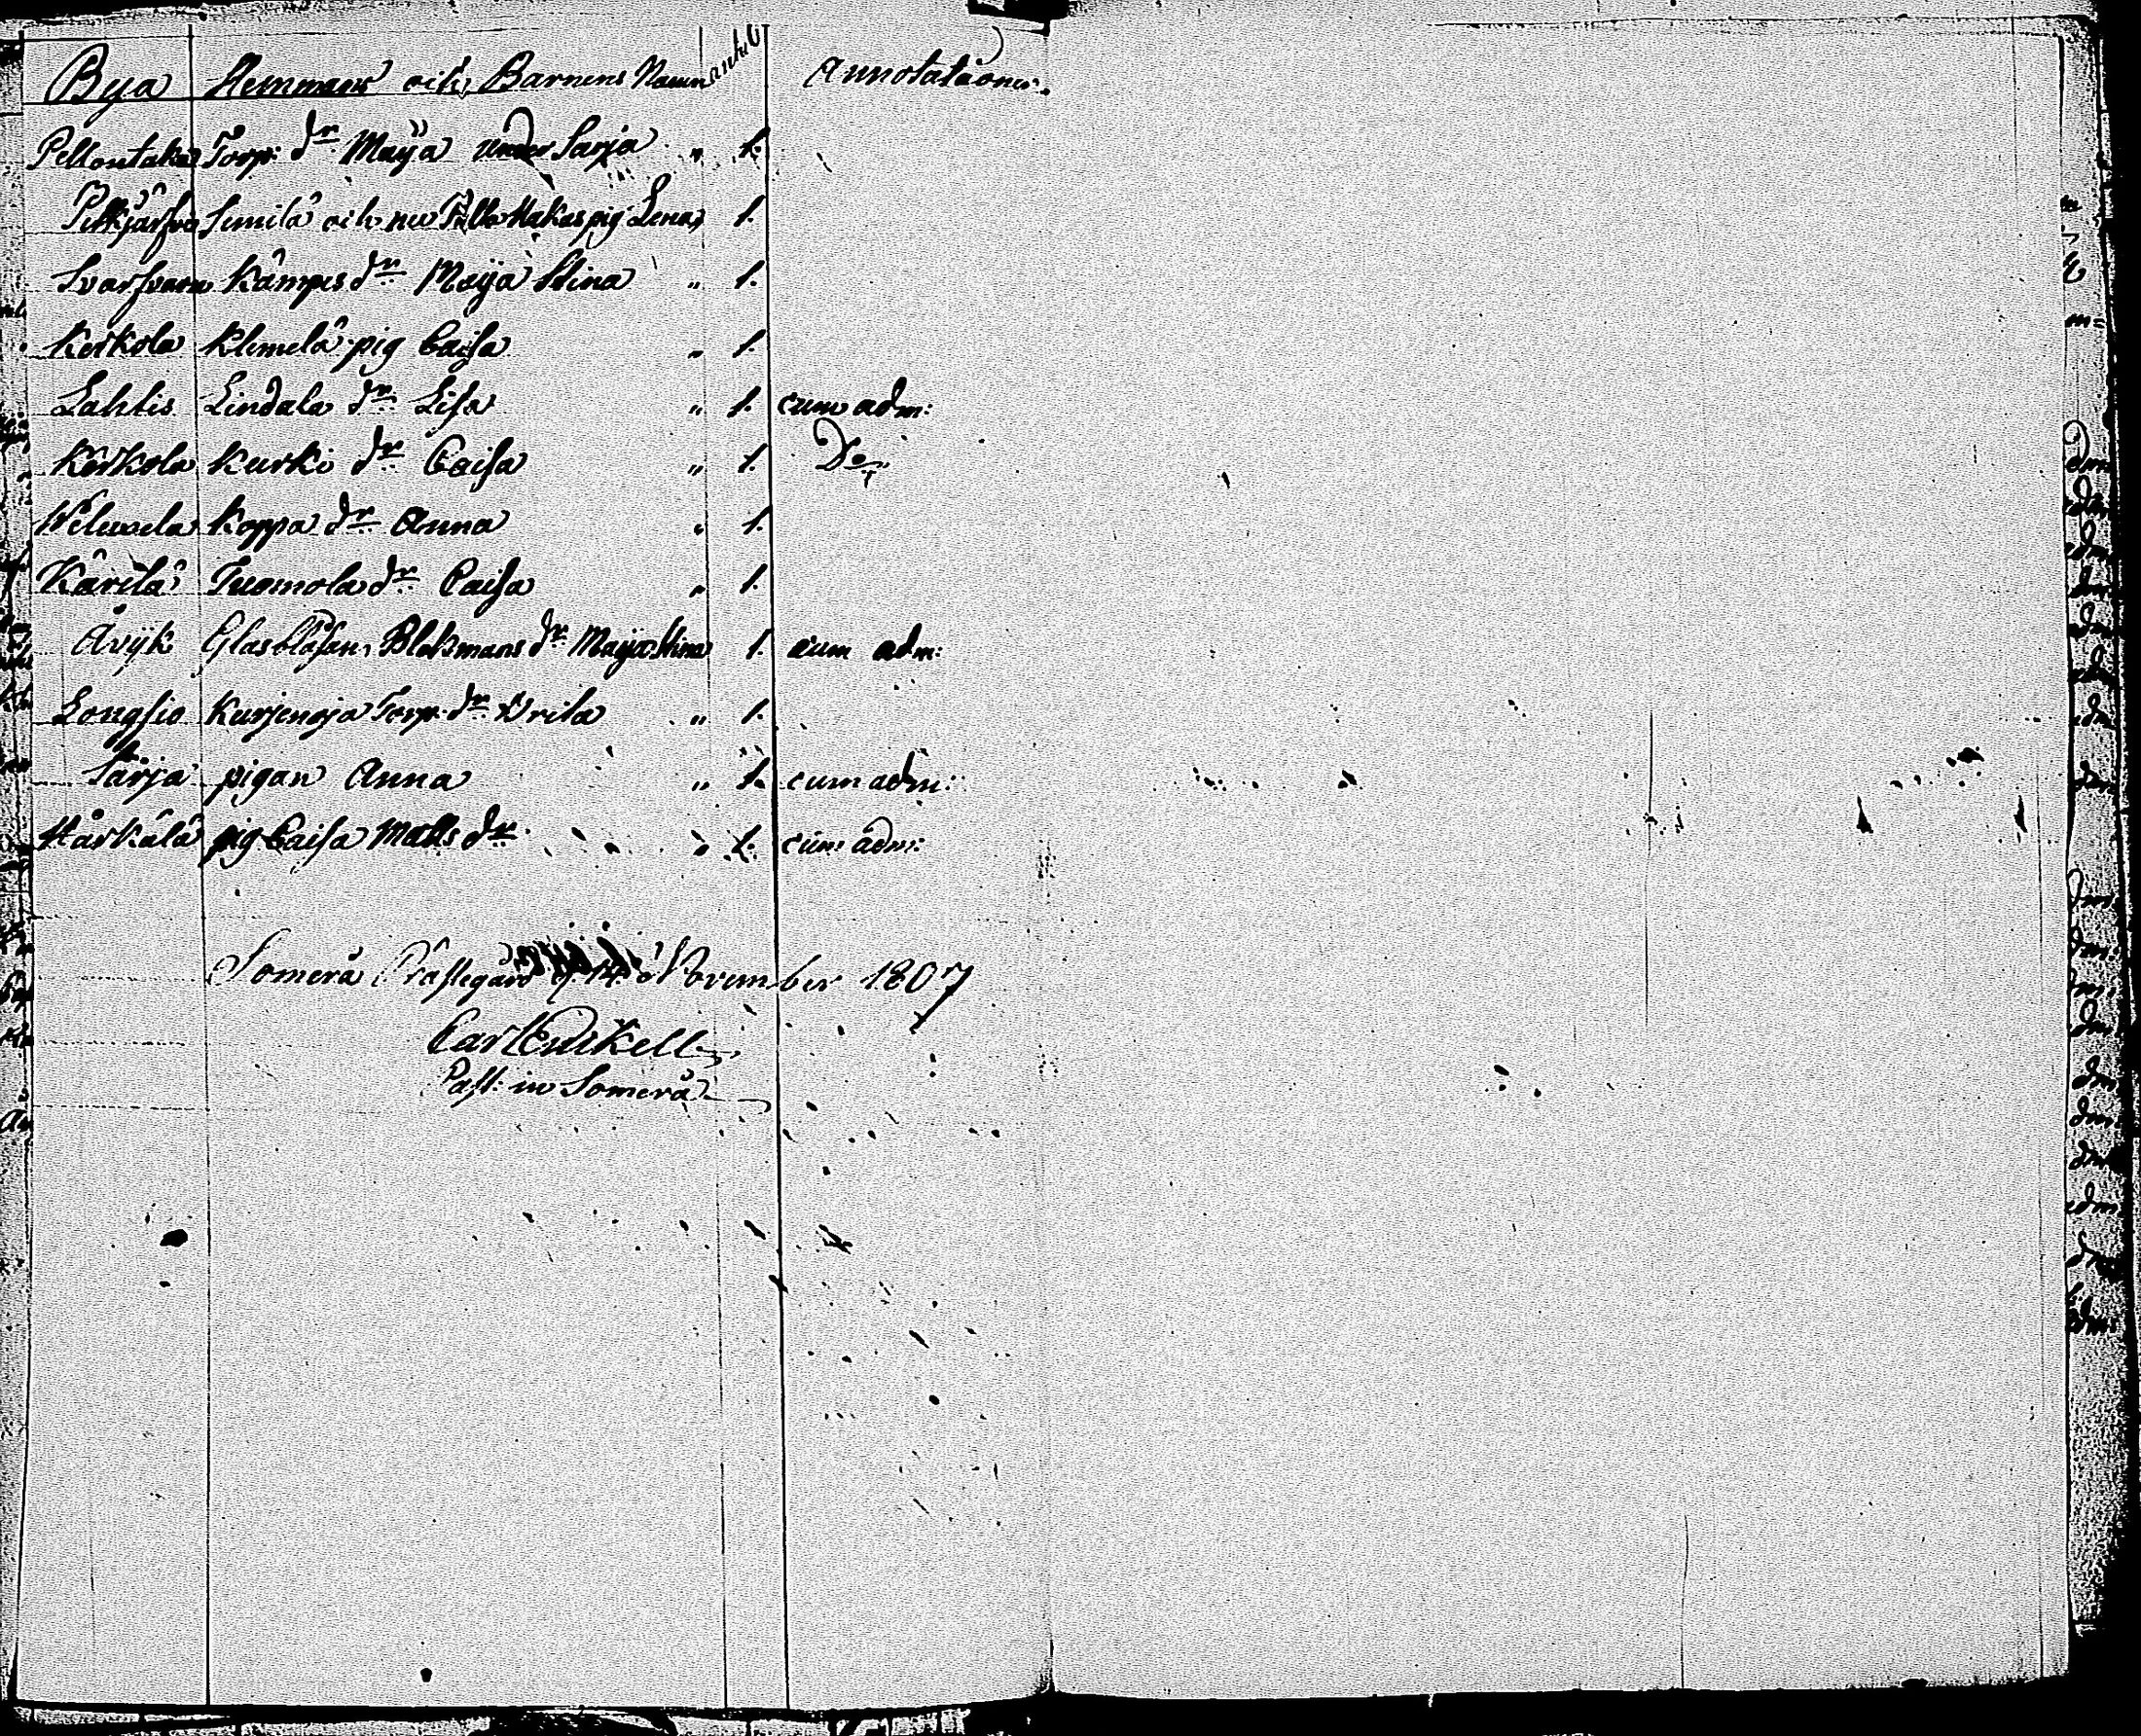 Bya Hemmans och Barnens Namn antal Annotationer.
Pellontaka Torp: dr Maija under Sarja " 1.
Pitkjärfvi Simila och nu Talla Hakas pig Lena 1.
Svarfvare Kämpis dr Maija Stina " 1.
Kerkola Klemelä pig Caisa " 1.
Lahtis Lindala dr Lisa " 1. cum adm:
Kerkola Kurki dr Caisa " 1. Do
Viluxela Koppa dr Anna " 1.
Kärilä Tuomola dr Caisa " 1.
Åvijk Glasblåsan Blokmans dr Maija Stina 1. cum adm:
Långsio Kurjenoja Torp. dr Brita " 1.
Särja pigan Anna " 1. cum adm:
Härkälä pig Caisa Matts dr " 1. cum adm:
Somerå Prästegård d. 14 November 1807
Carl Wikell
Past: in Somerå